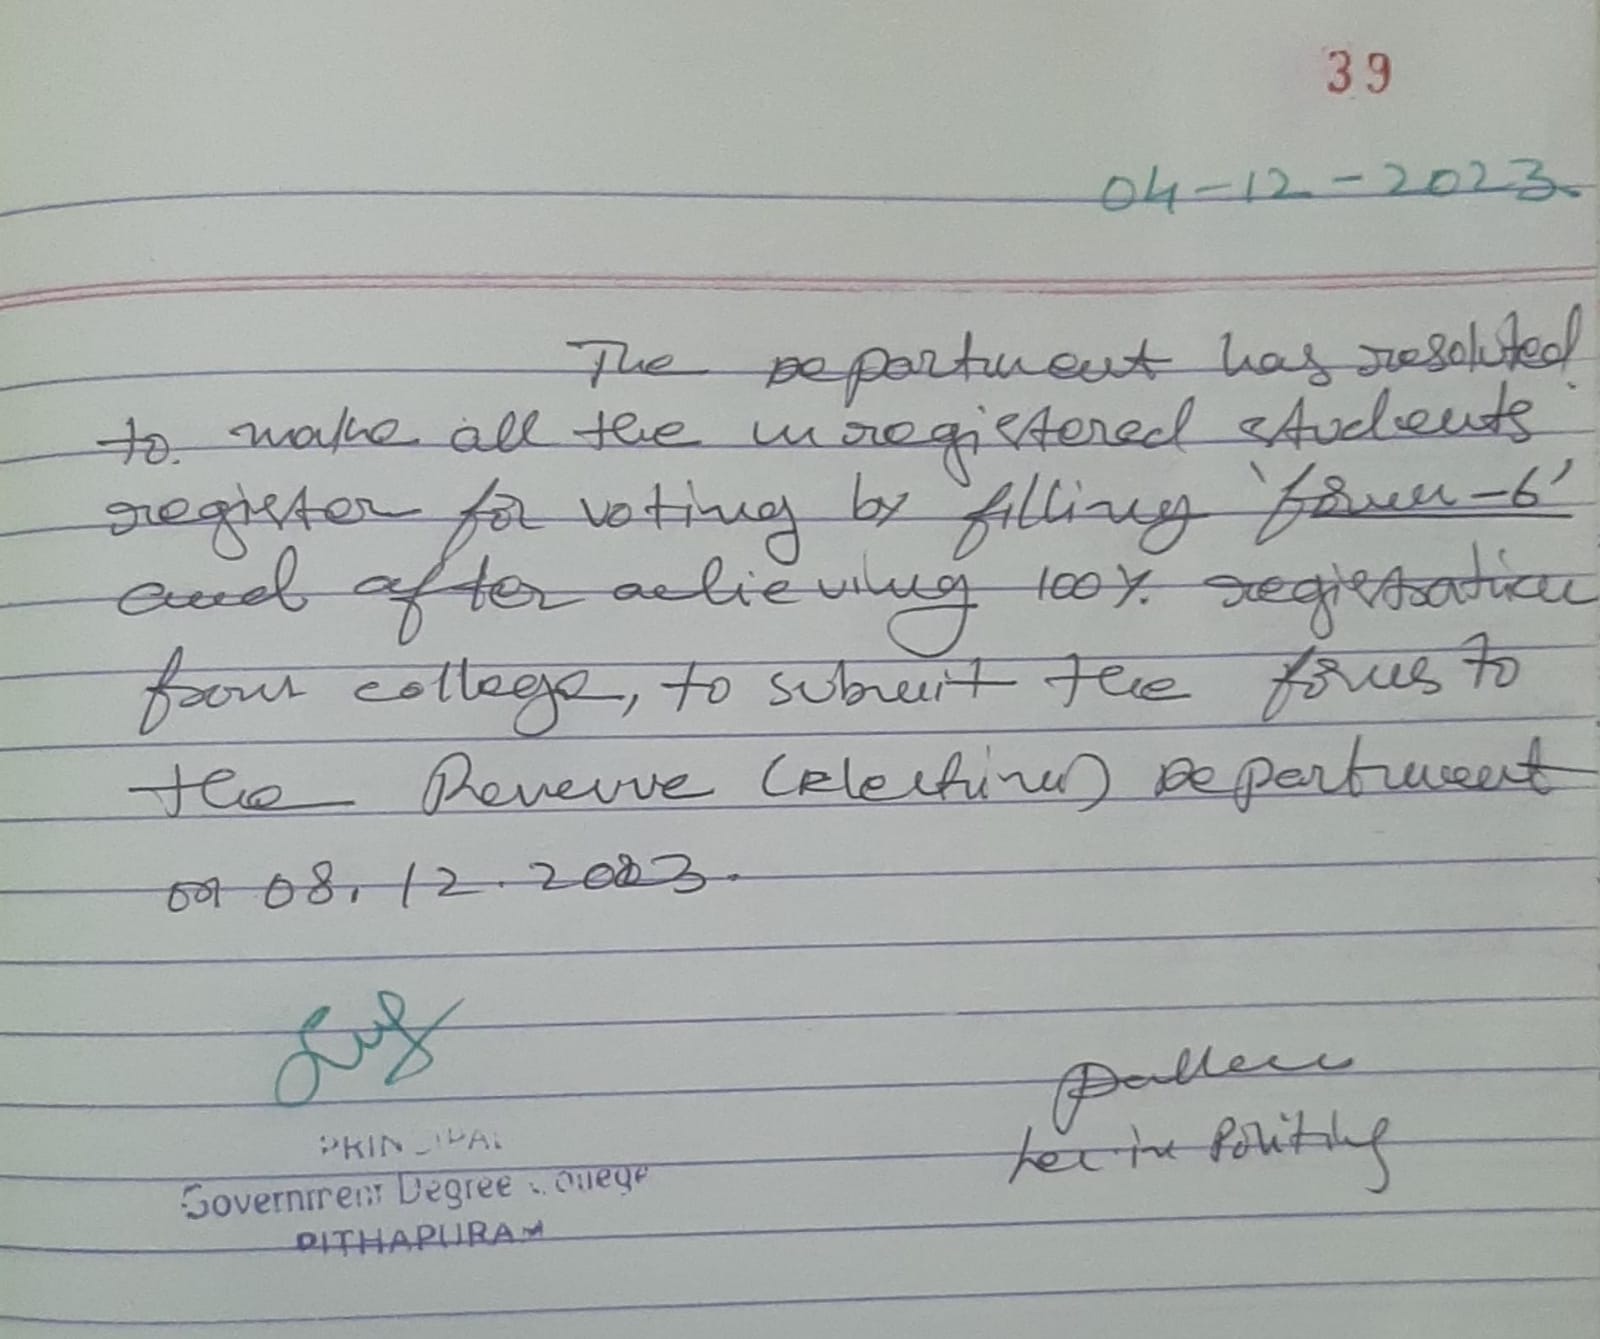 39
04-12-2023.
The Department has resoluted
to make all the unregistered students
register for voting by filling 'form-6'
and after achieving 100% registration
from college, to submit the forms to
the Revenue (Elections) Department
on 08.12.2023.
PRINCIPAL
Government Degree College
PITHAPURAM
Lec. in